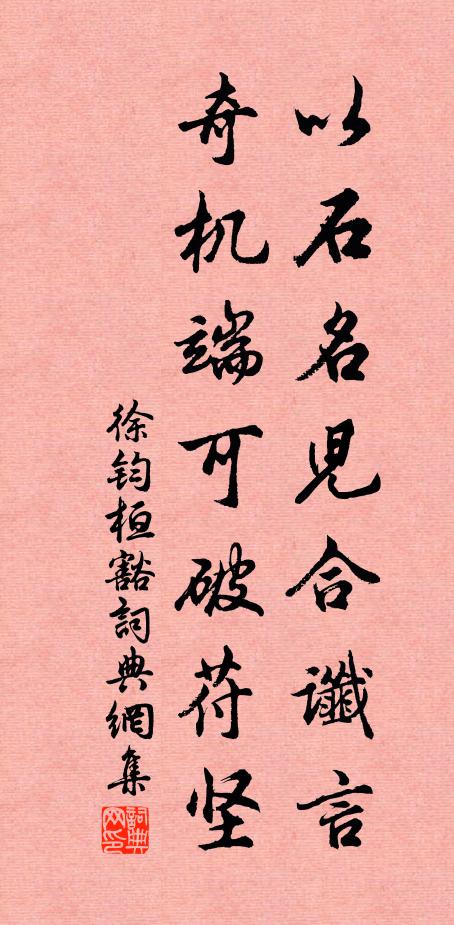 以石名児合讖言
奇机端可破苻坚
徐钧桓豁詞典網集
詞典网印